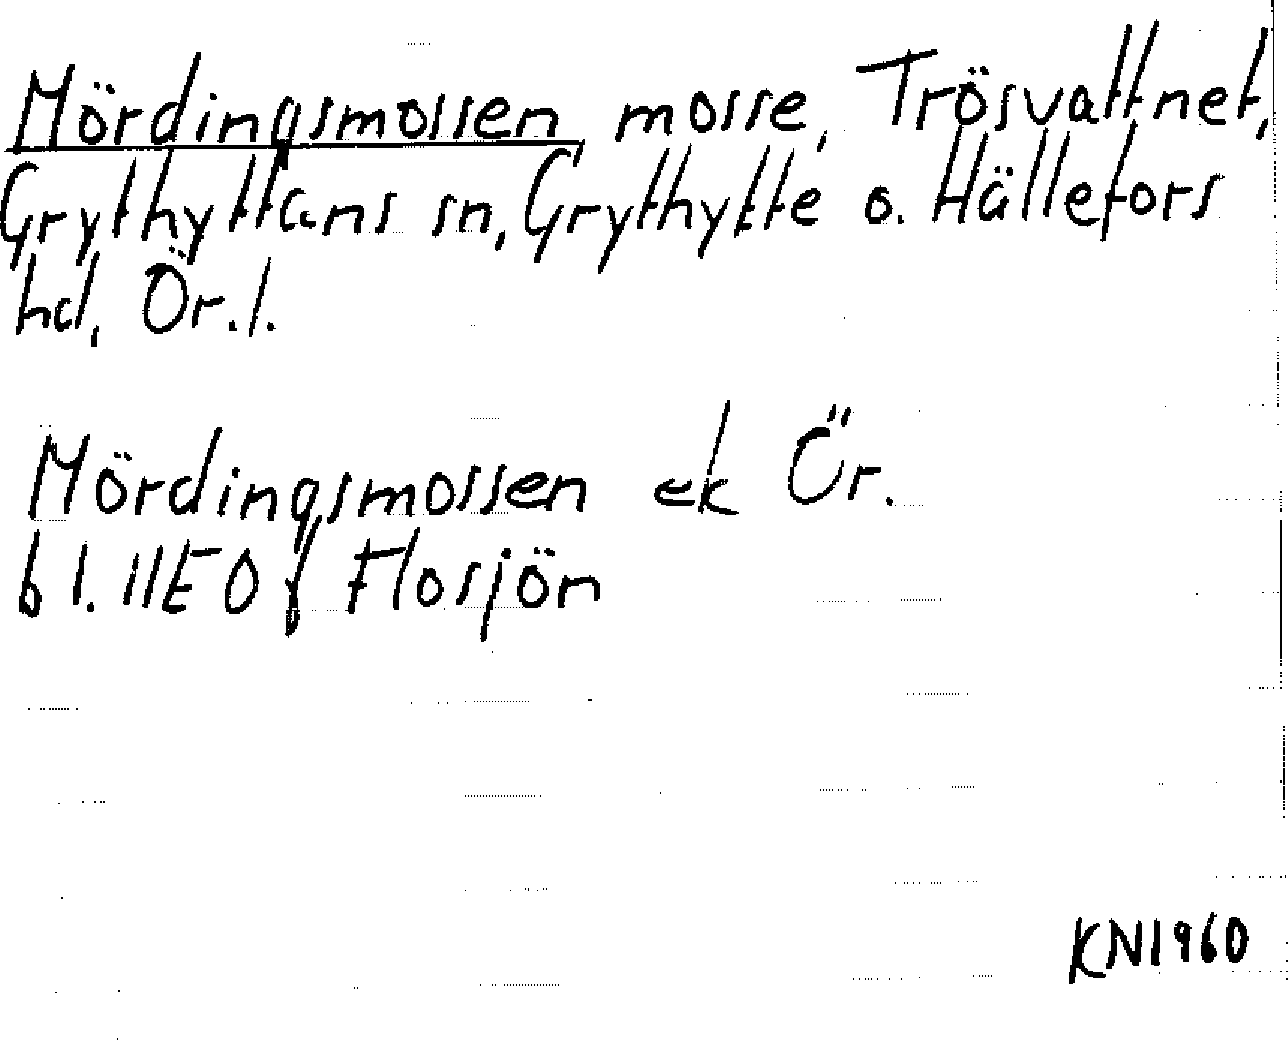 Mördingsmossen mosse, Trösvattnet,
Grythyttans sn, Grythytte o. Hällefors
hd, Ör.l.
Mördingsmossen ek Ör.
bl. 11EO f Flosjön
KN1960